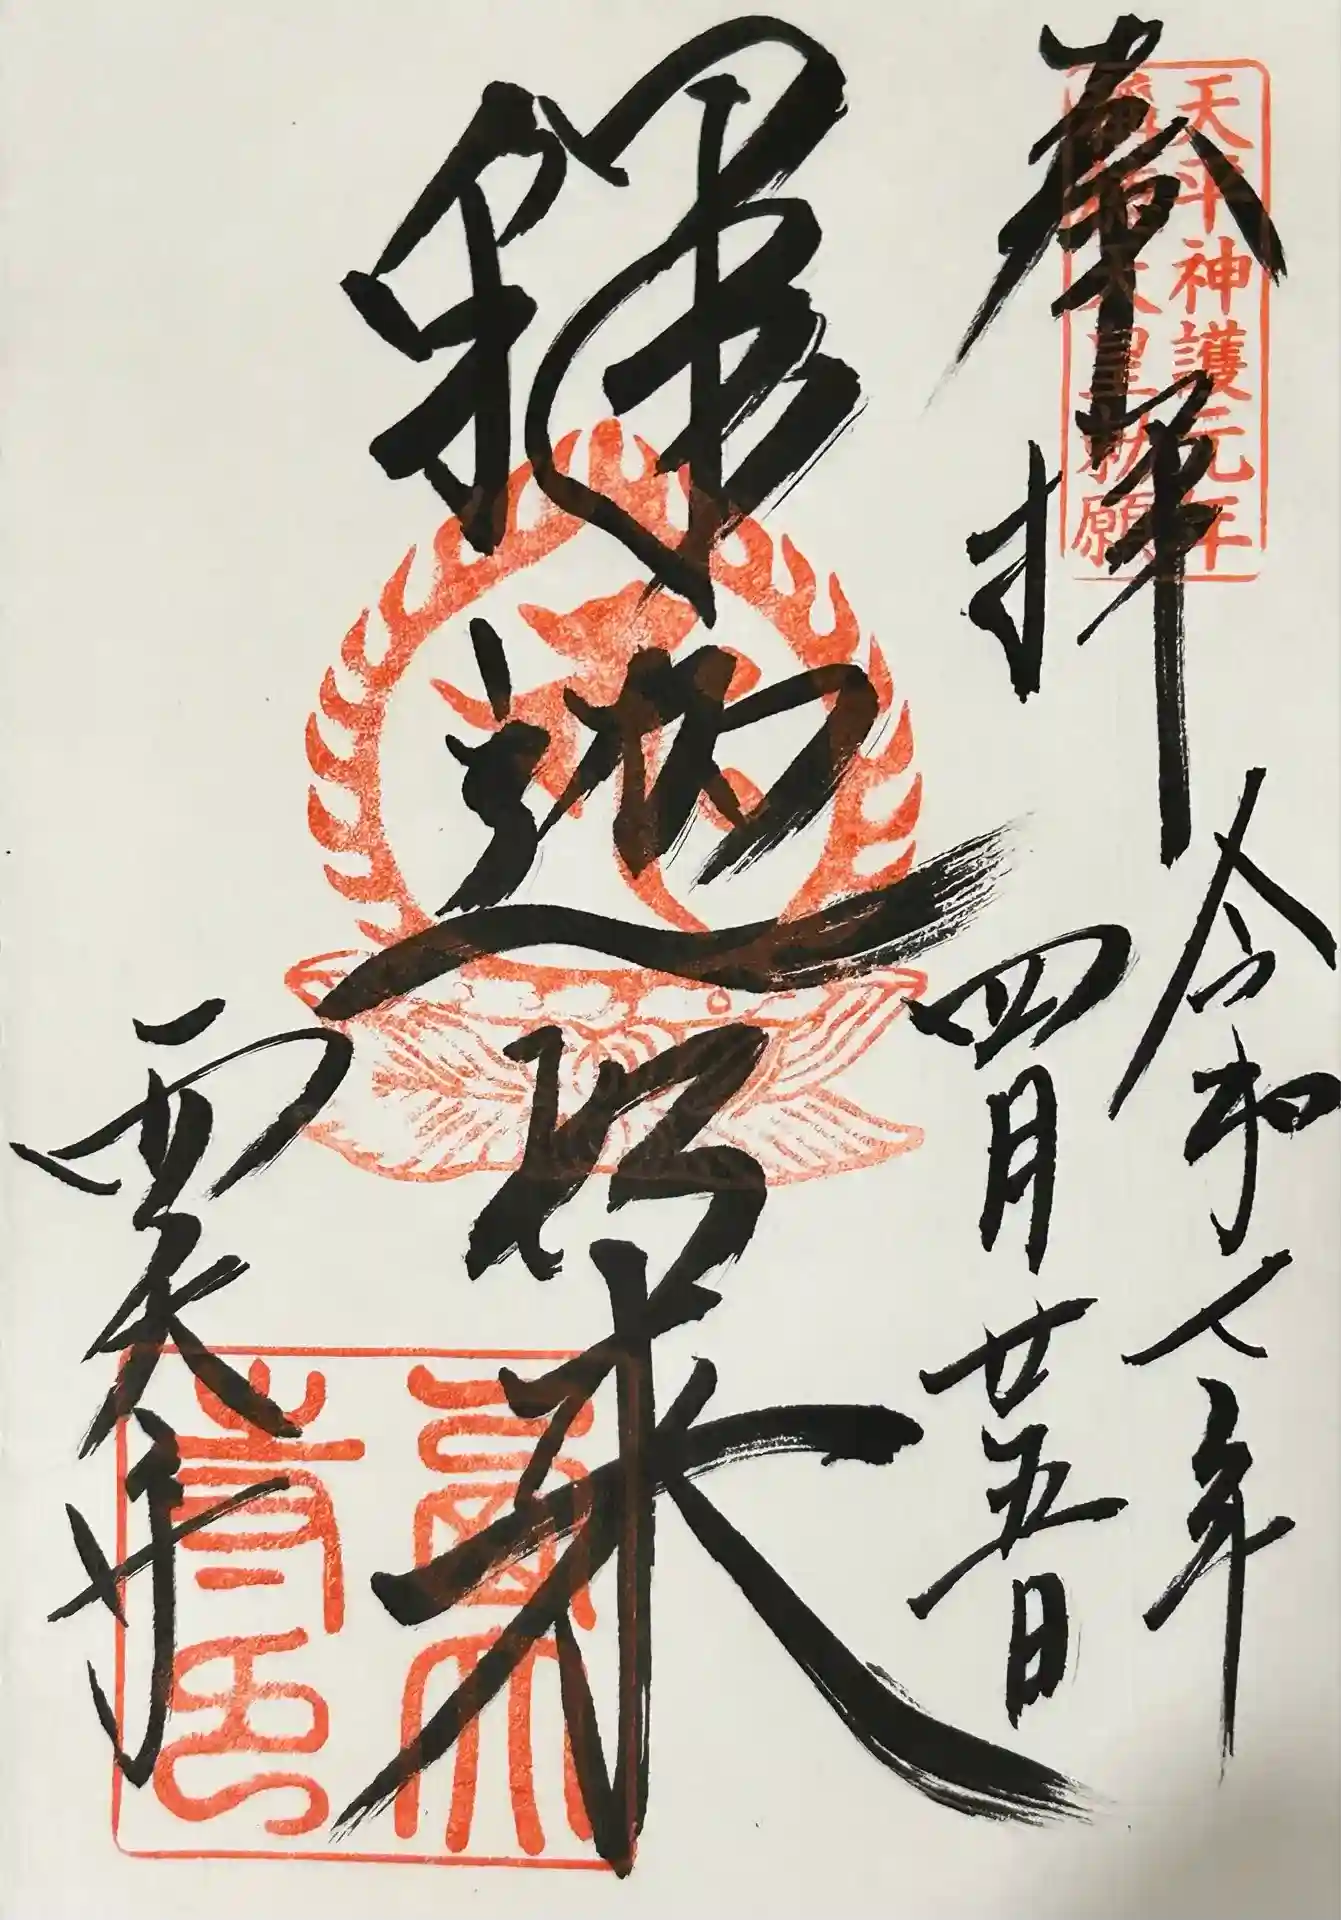 奉拝
天平神護元年
稱徳天皇勅願
令和七年
四月廿五日
釋迦如来
西大寺
西大寺印